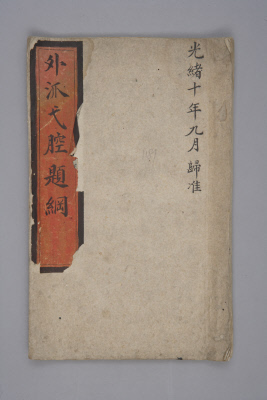 光緒十年九月歸准
外派弋腔題綱